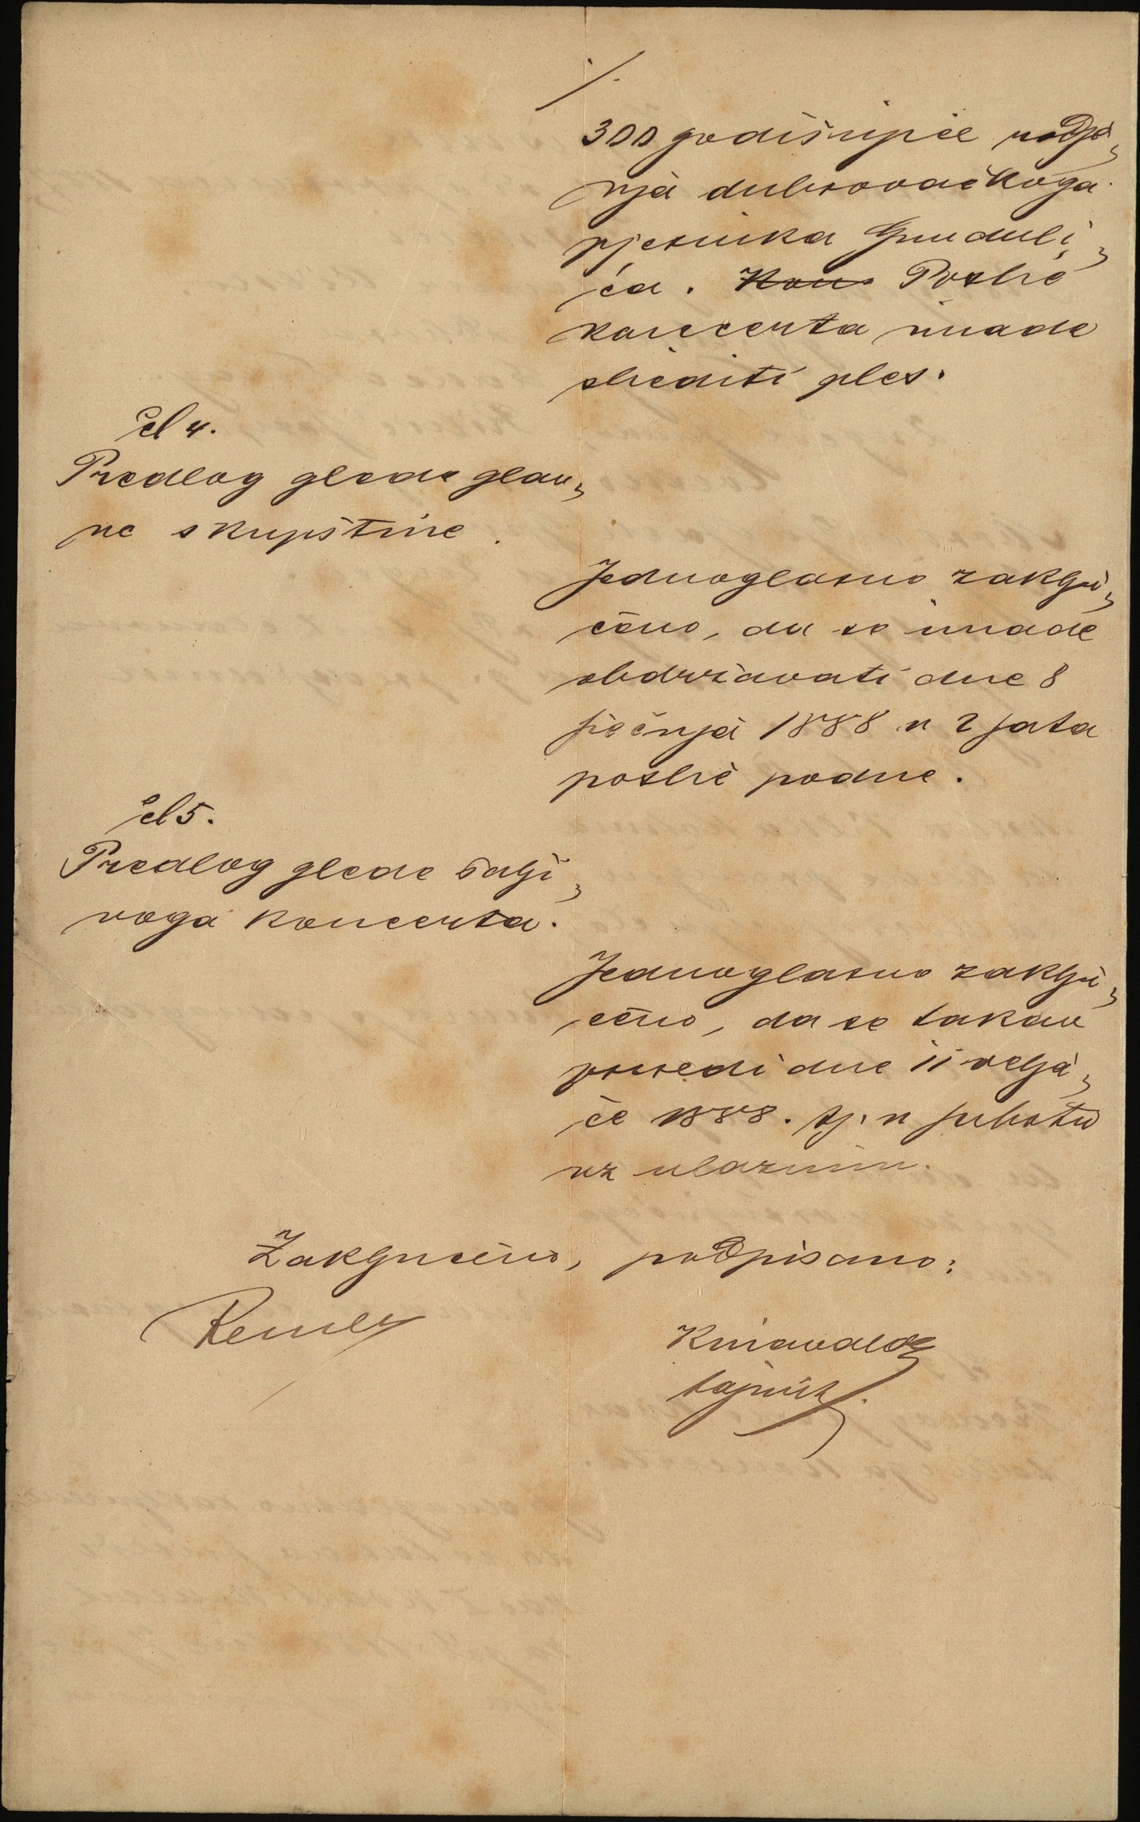 /.
300 godišnjice rodje„
nja dubrovačkoga
pjesnika Gunduli„
ća. Konc Poslie
koncerta imade
slediti ples.
čl 4.
Predlog glede glav„
ne skupštine.
Jednoglasno zaklju„
čeno, da se imade
obdržavati dne 8
siečnja 1888 u 2 sata
poslie podne.
čl 5.
Predlog glede šalji„
voga koncerta.
Jednoglasno zaklju„
čeno, da se takav
priredi dne 11 velja„
če 1888. tj. u subotu
uz ulazninu.
Zaključeno, podpisano:
tajnik.